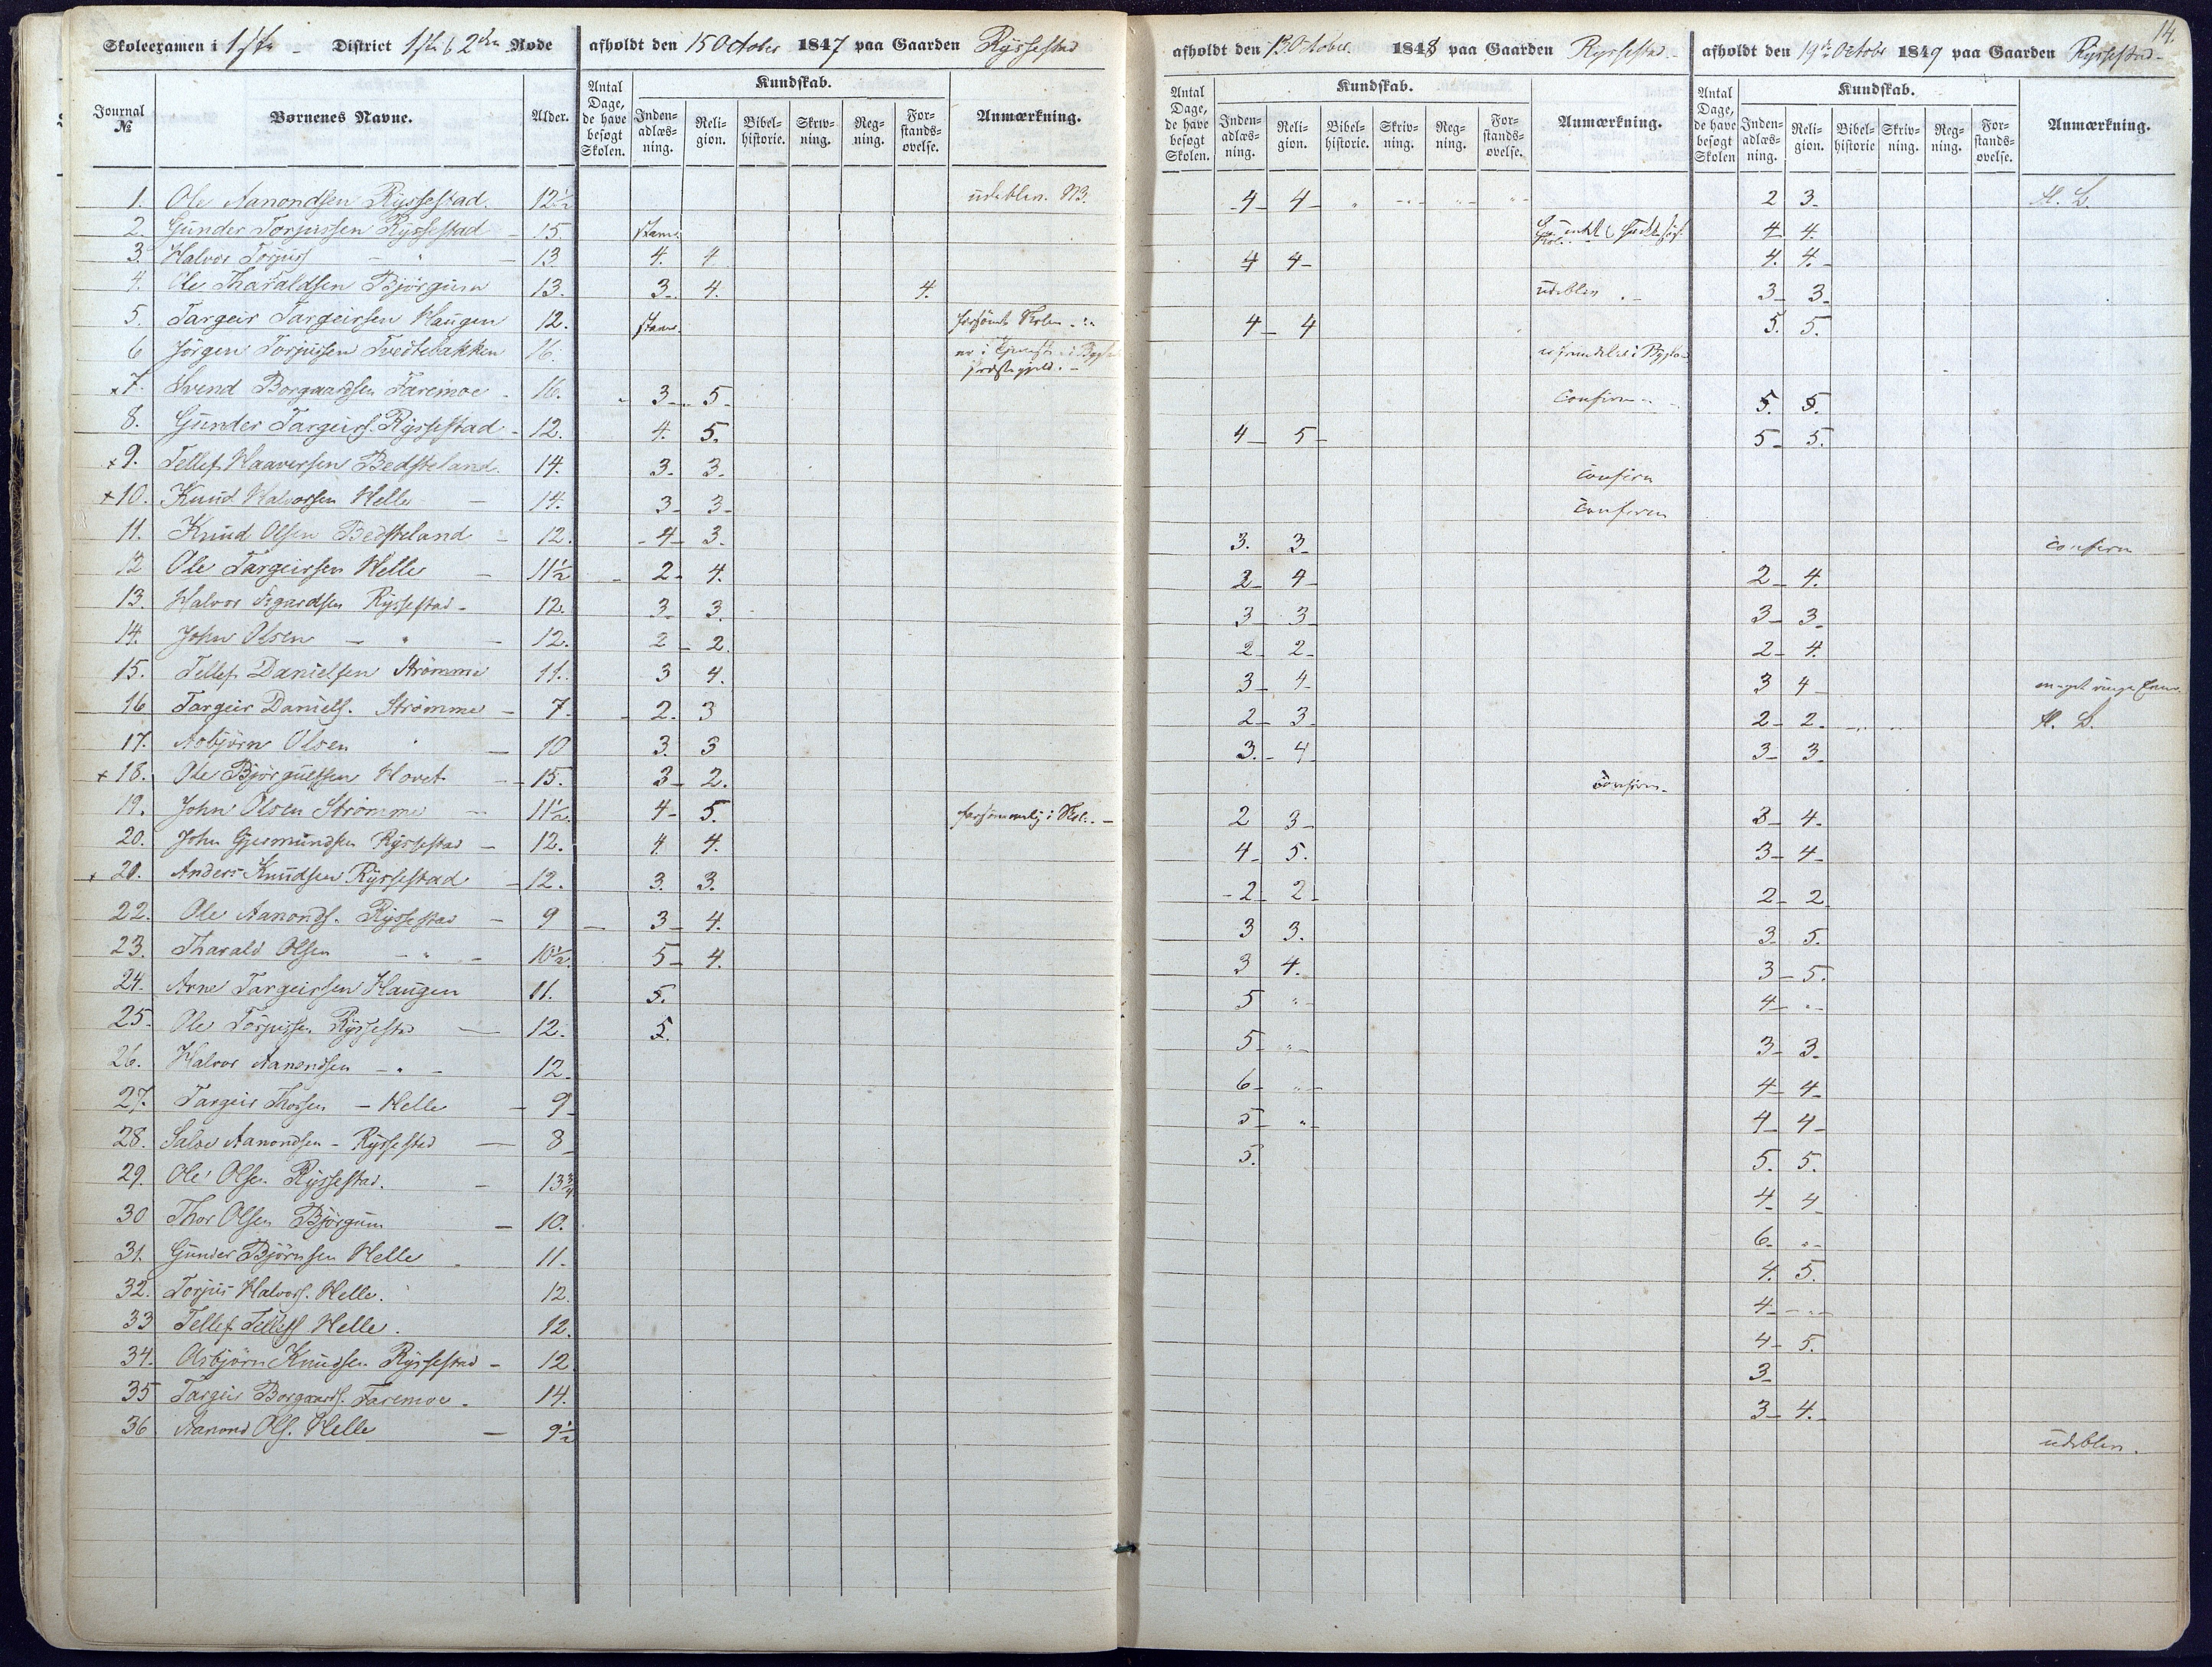 14.
Skoleexamen i 1ste District 1ste & 2den Rode afholdt den 15 October 1847 paa Gaarden Ryssestad afholdt den 13 October 1848 paa Gaarden Ryssestad afholdt den 19de October 1849 paa Gaarden Ryssestad
Journal № Børnenes Navne. Alder. Antal Dage, de have besøgt Skolen. Kundskab. Inden-adlæs-ning. Reli-gion. Bibel-historie. Skriv-ning. Reg-ning. For-stands-øvelse. Anmærkning. Antal Dage, de have besøgt Skolen. Kundskab. Inden-adlæs-ning. Reli-gion. Bibel-historie. Skriv-ning. Reg-ning. For-stands-øvelse. Anmærkning. Antal Dage, de have besøgt Skolen Kundskab. Inden-adlæs-ning. Reli-gion. Bibel-historie Skriv-ning. Reg-ning. For-stands-øvelse. Anmærkning.
1. Ole Aanondsen Ryssestad. 12½ udeblev. NB. 4 4 2 3
2. Gunder Torjussen Ryssestad 15 4 4.
3. Halvor Torjuss - " - 13 4. 4 4 4 4. 4.
4. Ole Tharaldsen Björgum 13. 3. 4. 4. udeblev 3 3
5. Targeir Targeirsen Haugen 12. forsömt Skolen 4 4 5. 5.
6 Jörgen Torjussen Tvedtebakken 16. er i Tjeneste i
x 7. Svend Borgaardsen Faremoe 16. 3 5 Confirm 5. 5.
8. Gunder Targeirs. Ryssestad 12. 4. 5. 4 5 5 5.
x 9. Tellef Haaversen Bedsteland 14. 3. 3. confirm
x 10. Knud Halvorsen Helle 14. 3 3 confirm
11. Knud Olsen Bedsteland 12. 4 3. 3. 3 confirm
12 Ole Targeirsen Helle 11½ 2 4. 2 4 2 4.
13. Halvor Sigurdsen Ryssestad 12. 3. 3. 3 3 3 3
14. John Olsen - " - 12. 2 2. 2 2 2 4.
15. Tellef Danielsen Strömme 11. 3 4. 3 4 3 4 meget ringe
16 Targeir Daniels. Strömme 7. 2. 3 2 3 2 2.
17. Asbjörn Olsen " 10 3. 3 3. 4 3 3
x 18. Ole Björgulfsen Hovet 15. 3 2. confirm.
19. John Olsen Strömme 11½ 4 5. forsömmelig i Skole. 2 3 3 4.
20. John Gjermundsen Ryssestad 12. 4. 4. 4 5. 3 4
x 21. Anders Knudsen Ryssestad 12. 3. 3. 2 2 2 2
22. Ole Aanonds. Ryssestad 9 3 4. 3 3. 3 5.
23. Tharald Olsen - " - 10½ 5 4. 3 4. 3 5.
24. Arne Targeirsen Haugen 11. 5. 5 " 4 "
25. Ole Torjussen Ryssestad 12. 5. 5 " 3 3
26. Halvor Aanondsen - " - 12 6 " 4 4
27. Targeir Thorsen - Helle 9 5 " 4 4
28. Salve Aanondsen - Ryssestad 8 5. 5. 5.
29. Ole Olsen Ryssestad. 13¾ 4 4
30 Thor Olsen Björgum 10. 6 "
31. Gunder Björnsen Helle 11. 4. 5.
32. Torjus Halvors. Helle. 12. 4 "
33 Tellef Tellefs Helle. 12. 4 5.
34. Asbjörn Knudsen Ryssestad 12. 3
35 Targeir Borgaards. Faremoe. 14. 3 4.
36 Aanond Ols. Helle 9½ udeblev.